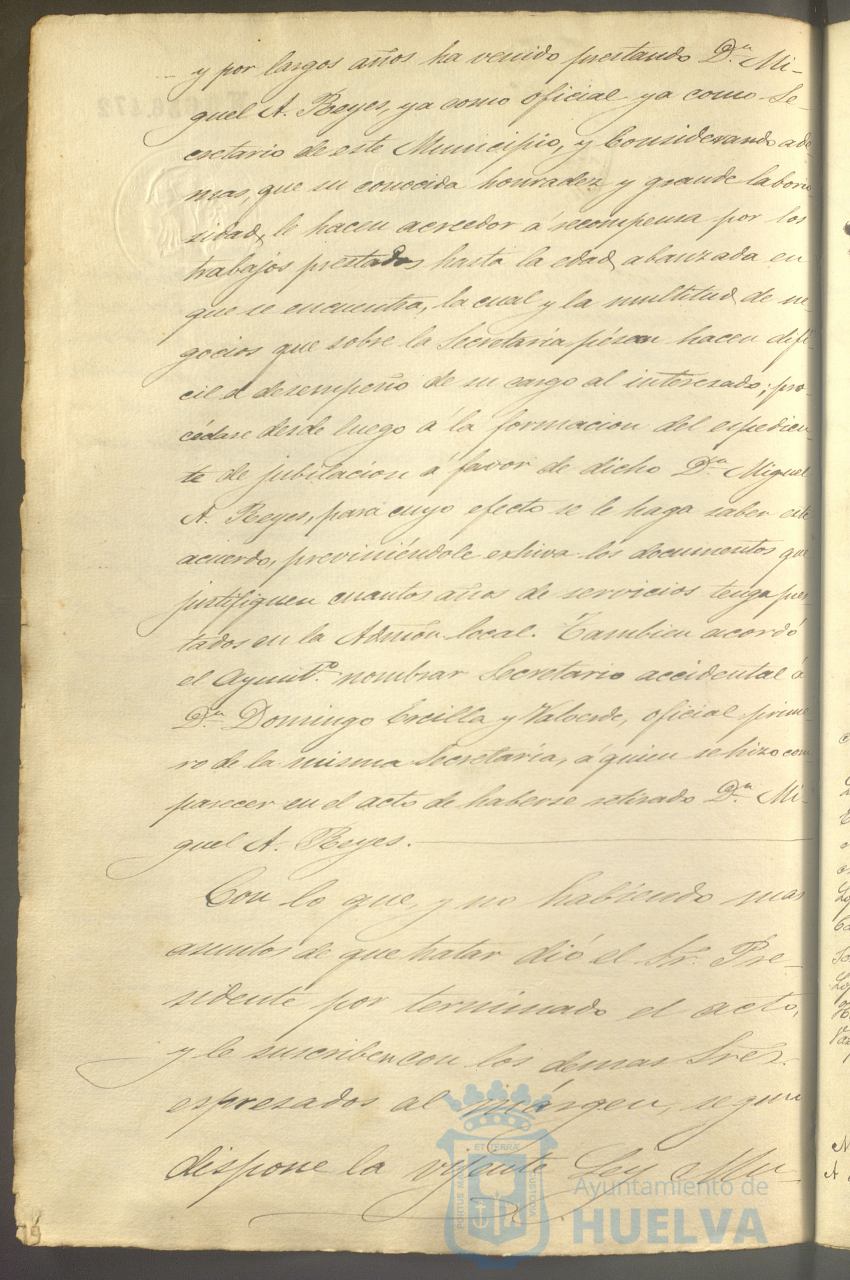 y por largos años ha venido prestando Dn. Mi-
guel A. Reyes, ya como oficial ya como Se-
cretario de este Municipio, y Considerando ade
mas, que su conocida honradez y grande laborio
sidad, le hacen acreedor á recompensa por los
trabajos prestados hasta la edad abanzada en
que se encuentra, la cual y la multitud de ne-
gocios que sobre la Secretaría pésan hacen difi-
cil el desempeño de su cargo al interesado; pro-
cédase desde luego á la formacion del espedien-
te de jubilacion á favor de dicho Dn. Miguel
A. Reyes, para cuyo efecto se le haga saber este
acuerdo, previniéndole exhiva los documentos que
justifiquen cuantos años de servicios tenga pres
tados en la Admón local. Tambien acordó
el Ayunto. nombrar Secretario accidental á
Dn. Domingo Ercilla y Valverde, oficial prime-
ro de la misma Secretaría, á quien se hizo com
parecer en el acto de haberse retirado Dn. Mi-
guel A. Reyes.
Con lo que, y no habiendo mas
asuntos de que tratar dió el Sr. Pre-
sidente por terminado el acto,
y le suscriben con los demas Sres.
espresados al márgen, segun
dispone la vijente Ley Mu-
Ayuntamiento de
HUELVA